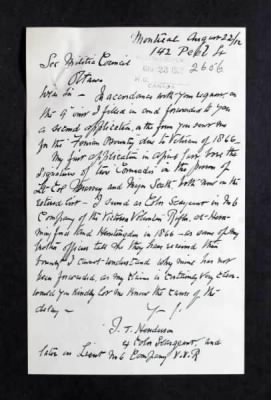 Montreal August 22/12
142 Peel St
Sec Militia Council
Ottawa
2656
CANADA
Dear Sir - In accordance with your request on
the 9th inst I filled in and forwarded to you
a second application, in the form you sent me
for the Fenian Bounty due to Veterans of 1866 -
My first application in April last bore the
signature of two Comrades in the person of
Lt Col Murray and Major Scott both now on the
retired list - I served as Color Sergeant in No 6
Company of the Victoria Volunteer Rifles, at Hemmingford and Huntingdon in 1866 - as some of my
brother officers tell me they have received the
bounty I cannot understand why mine has not
been forwarded, as my claim is certainly very clear.
Would you kindly let me know the cause of the
delay -
J. T. Henderson
Color Sergeant, and
later on Lieut No 6 Company V.V.R